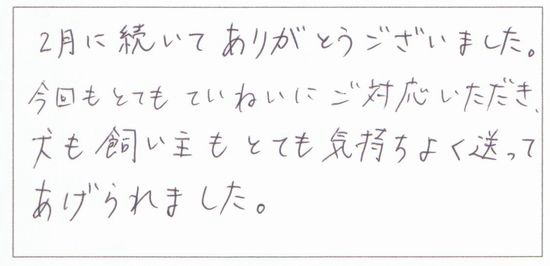 2月に続いてありがとうございました。
今回もとてもていねいにご対応いただき、
犬も飼い主もとても気持ちよく送って
あげられました。